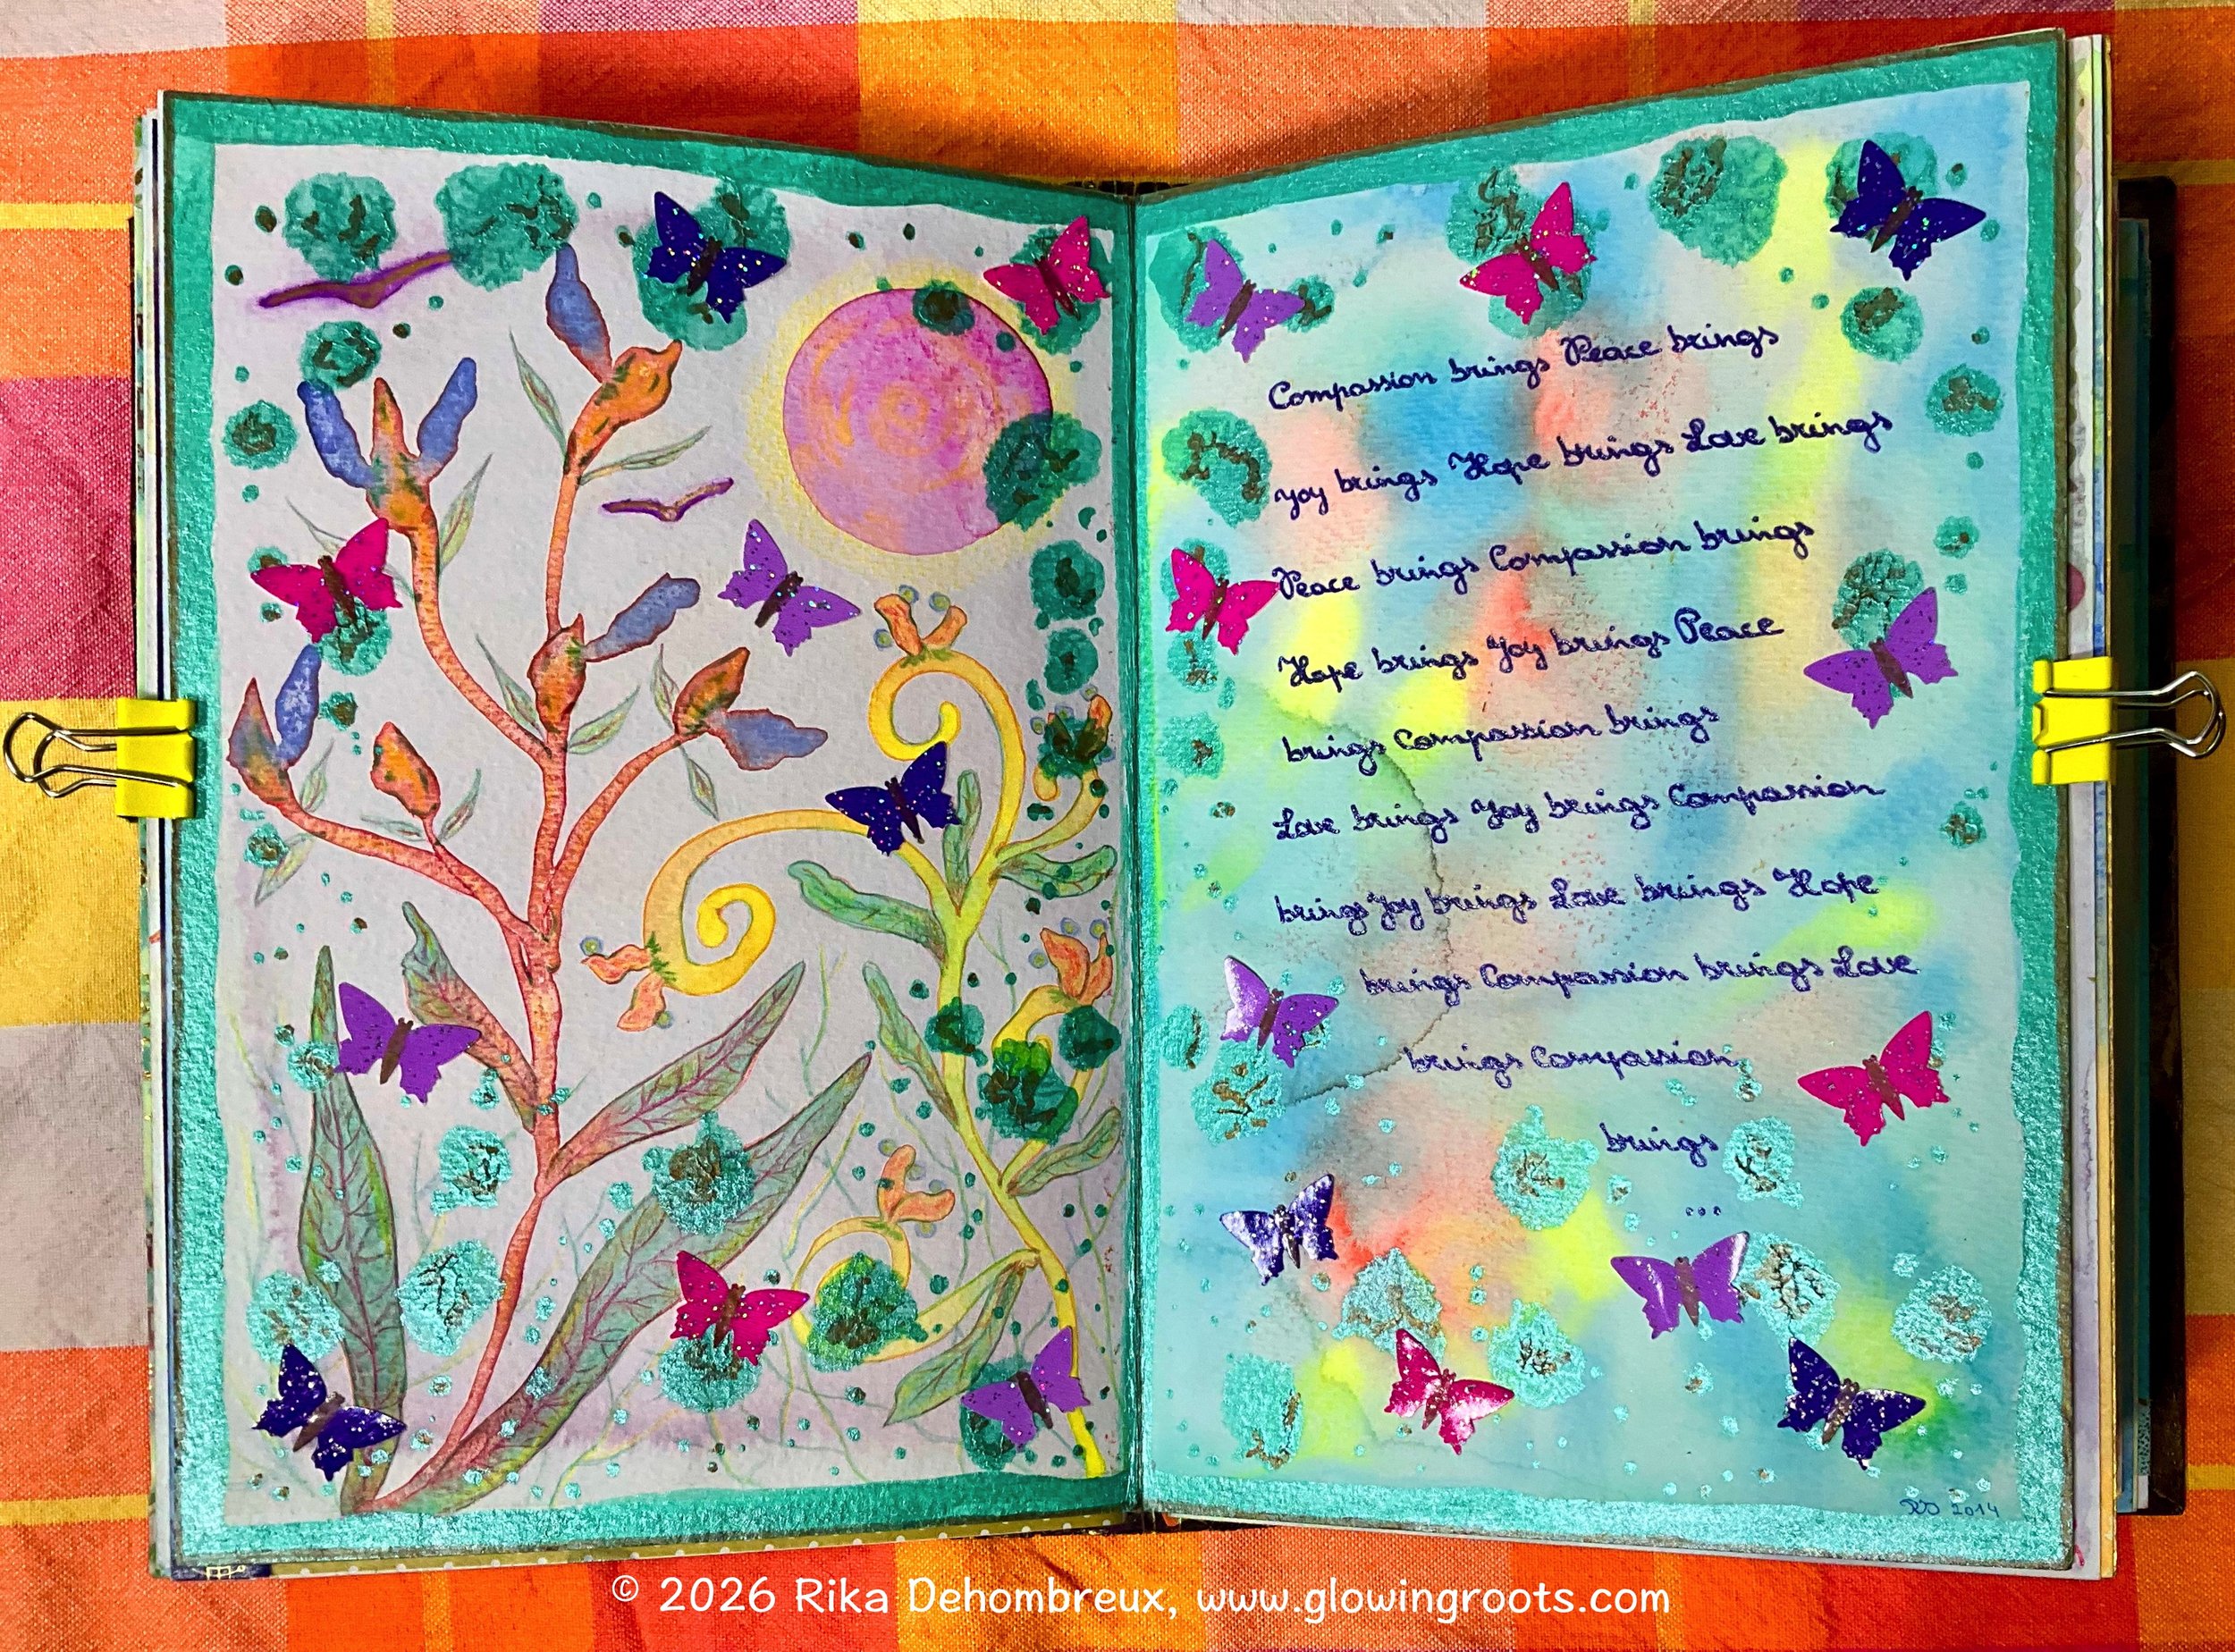 Compassion brings Peace brings
Joy brings Hope brings Love brings
Peace brings Compassion brings
Hope brings Joy brings Peace
brings Compassion brings
Love brings Joy brings Compassion
brings Joy brings Love brings Hope
brings Compassion brings Love
brings Compassion
brings
...
RD 2014
© 2026 Rika Dehombreux, www.glowingroots.com